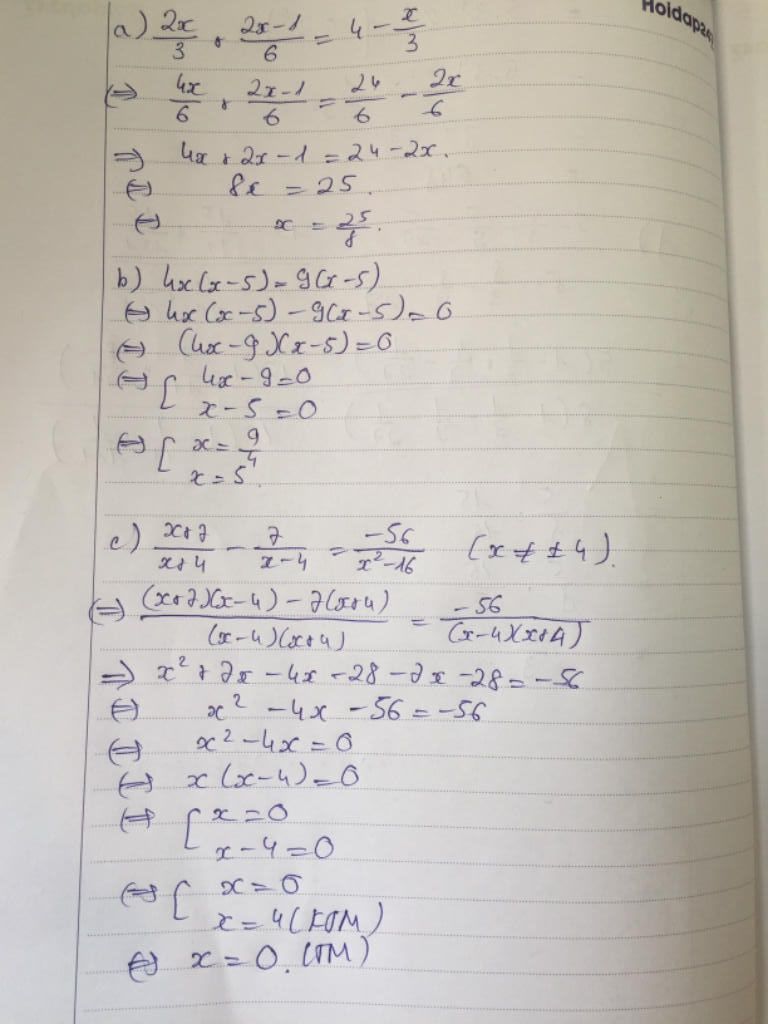 Hoidap24
a) 2x/3 + 2x-1/6 = 4 - x/3
⇔ 4x/6 + 2x-1/6 = 24/6 - 2x/6
⇒ 4x + 2x - 1 = 24 - 2x.
⇔ 8x = 25.
⇔ x = 25/8.
b) 4x(x-5) = 9(x-5)
⇔ 4x(x-5) - 9(x-5) = 0
⇔ (4x-9)(x-5) = 0
⇔ [ 4x-9=0
x-5=0
⇔ [ x = 9/4
x = 5.
c) x+7/x+4 - 7/x-4 = -56/x²-16 (x ≠ ±4).
⇔ (x+7)(x-4) - 7(x+4)/(x-4)(x+4) = -56/(x-4)(x+4)
⇒ x² + 7x - 4x - 28 - 7x - 28 = -56
⇔ x² - 4x - 56 = -56
⇔ x² - 4x = 0
⇔ x(x-4) = 0
⇔ [ x = 0
x-4=0
⇔ [ x = 0
x = 4 (KTM)
⇔ x = 0. (TM)